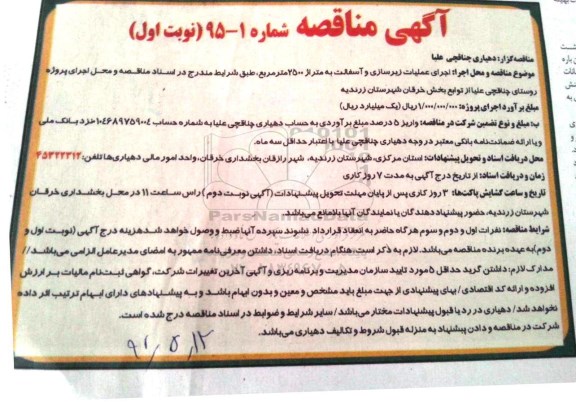 آگهی مناقصه شماره ۱-۹۵ (نوبت اول)
مناقصه‌گزار: دهیاری چناقچی علیا
موضوع مناقصه و محل اجرا: اجرای عملیات زیرسازی و آسفالت به متراژ ۲۵۰۰مترمربع، طبق شرایط مندرج در اسناد مناقصه و محل اجرای پروژه
روستای چناقچی علیا از توابع بخش خرقان شهرستان زرندیه
مبلغ برآورد اجرای پروژه: ۱/۰۰۰/۰۰۰/۰۰۰ریال (یک میلیارد ریال)
ب: مبلغ و نوع تضمین شرکت در مناقصه: واریز ۵ درصد مبلغ برآوردی به حساب دهیاری چناقچی علیا به شماره حساب ۰۱۰۴۶۸۹۷۵۹۰۰۴نزد بانک ملی
و یا ارائه ضمانت‌نامه بانکی معتبر در وجه دهیاری چناقچی علیا با اعتبار حداقل سه ماه.
محل دریافت اسناد و تحویل پیشنهادات: استان مرکزی، شهرستان زرندیه، شهر رازقان بخشداری خرقان، واحد امور مالی دهیاری‌ها تلفن: ۴۵۳۲۲۳۱۲
زمان و دریافت اسناد: از تاریخ درج آگهی به مدت ۷ روز کاری
تاریخ و ساعت گشایش پاکت‌ها: ۳ روز کاری پس از پایان مهلت تحویل پیشنهادات (آگهی نوبت دوم) راس ساعت ۱۱ در محل بخشداری خرقان
شهرستان زرندیه، حضور پیشنهاد دهندگان یا نمایندگان آنها بلامانع می‌باشد.
شرایط مناقصه: نفرات اول و دوم و سوم هرگاه حاضر به انعقاد قرارداد نشوند سپرده آنها ضبط و وصول خواهد شد هزینه درج آگهی (نوبت اول و
دوم) به عهده برنده مناقصه می‌باشد. لازم به ذکر است، هنگام دریافت اسناد، داشتن معرفی‌نامه ممهور به امضای مدیرعامل الزامی می‌باشد//
مدارک لازم: داشتن گرید حداقل ۵ مورد تایید سازمان مدیریت و برنامه‌ریزی و آگهی آخرین تغییرات شرکت، گواهی ثبت‌نام مالیات بر ارزش
افزوده و ارائه کد اقتصادی / بهای پیشنهادی از جهت مبلغ باید مشخص و معین و بدون ابهام باشد و به پیشنهادهای دارای ابهام ترتیب اثر داده
نخواهد شد/ دهیاری در رد یا قبول پیشنهادات مختار می‌باشد/ سایر شرایط و ضوابط در اسناد مناقصه درج شده است.
شرکت در مناقصه و دادن پیشنهاد به منزله قبول شروط و تکالیف دهیاری می‌باشد.